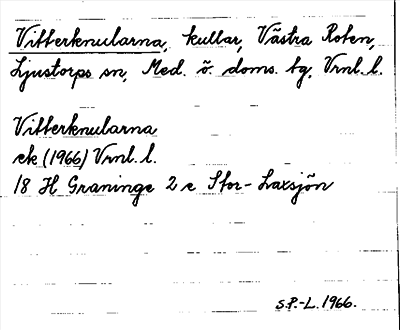 Vitterknularna, kullar, Västra Roten,
Ljustorps sn, Med. ö. doms. tg, Vrnl. l.
Vitterknularna
ek (1966) Vrnl. l.
18 H Graninge 2 c Stor-Laxsjön
S.P.-L. 1966.